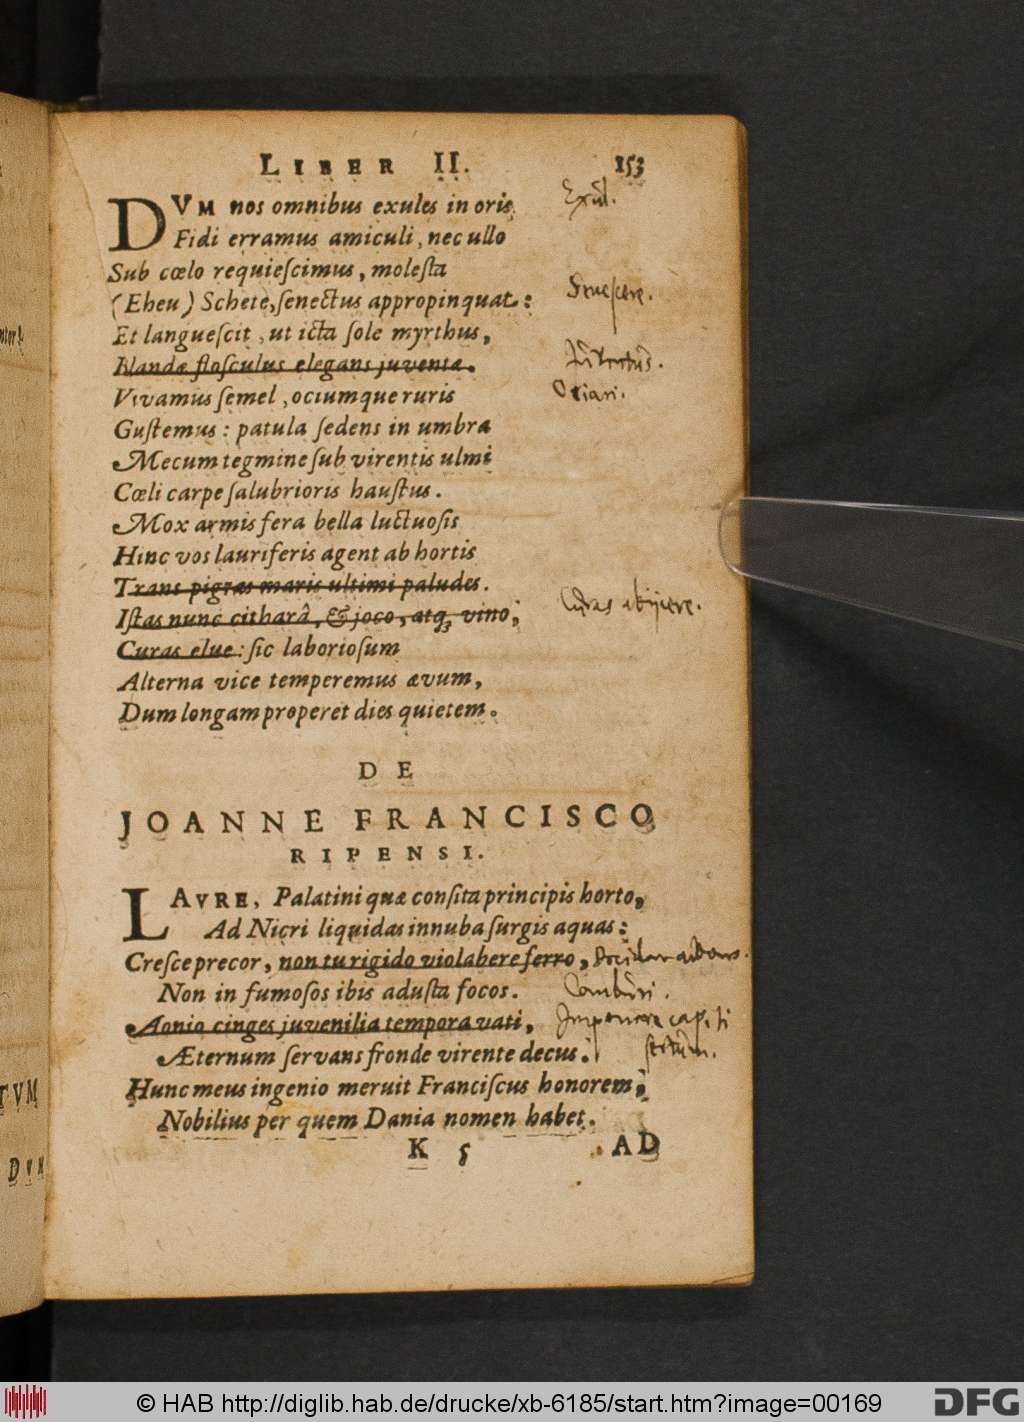 LIBER II. 153
DVM nos omnibus exules in oris,
Exul.
Fidi erramus amiculi, nec ullo
Sub cœlo requieſcimus, moleſta
(Eheu) Schete, ſenectus appropinquat:
Seneſcere.
Et langueſcit, ut icta ſole myrthus,
Blandæ floſculus elegans juventæ.
Juventus.
Vivamus ſemel, ociumque ruris
Otiari.
Guſtemus: patula ſedens in umbra
Mecum tegmine ſub virentis ulmi
Cœli carpe ſalubrioris hauſtus.
Mox armis fera bella luctuoſis
Hinc vos lauriferis agent ab hortis
Trans pigras maris ultimi paludes.
Iſtas nunc citharâ, & joco, atq; vino,
Curas abijcere.
Curas elue: ſic laborioſum
Alterna vice temperemus ævum,
Dum longam properet dies quietem.
DE
JOANNE FRANCISCO
RIPENSI.
LAVRE, Palatini quæ conſita principis horto,
Ad Nicri liquidas innuba ſurgis aquas:
Creſce precor, non tu rigido violabere ferro,
Non in fumoſos ibis aduſta focos.
Comburi.
Aonio cinges juvenilia tempora vati,
Imponere capiti
Æternum ſervans fronde virente decus.
Hunc meus ingenio meruit Franciſcus honorem;
Nobilius per quem Dania nomen habet.
K 5 AD
TVM
DVM
© HAB http://diglib.hab.de/drucke/xb-6185/start.htm?image=00169
DFG